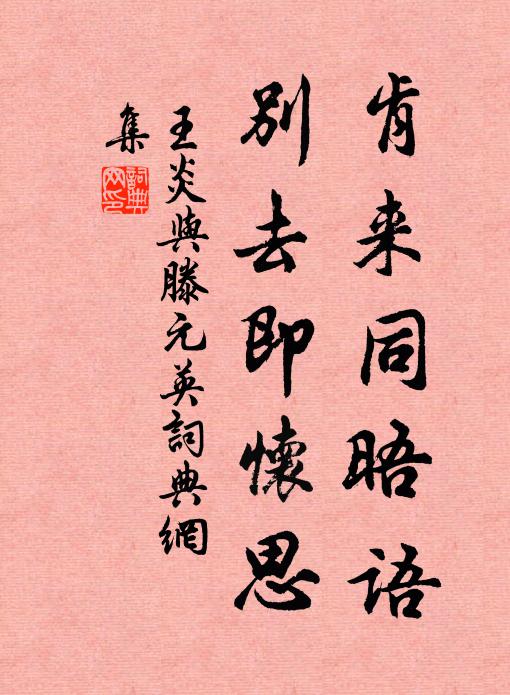 肯来同晤语
别去即懷思
王炎與滕元英詞典網
集
詞典網印